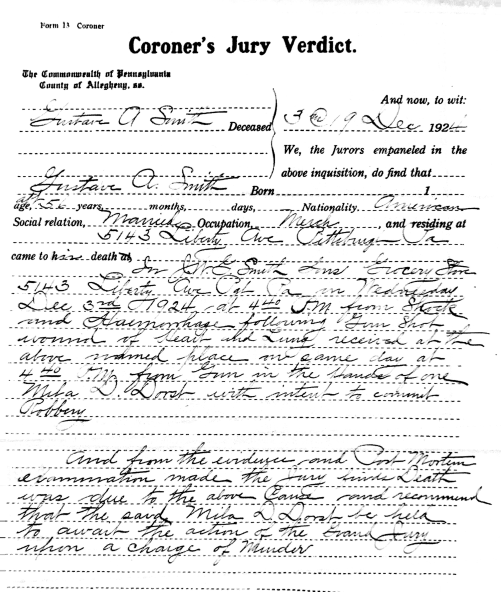 Form 13 Coroner
Coroner's Jury Verdict.
The Commonwealth of Pennsylvania
County of Allegheny, ss.
And now, to wit:
Gustave A Smith Deceased 19 Dec 1924
We, the Jurors empaneled in the
above inquisition, do find that
Gustave A. Smith Born 1
age, years, months, days, Nationality American
Social relation, Married, Occupation, Merch, and residing at
5143 Liberty Ave Pittsburgh Pa
came to his death at
In Smith Grocery Store
5143 Liberty Ave Pgh Pa on Wednesday
Dec 3rd 1924, at 4 40 P.M from Shock
and Haemorrhage following Gun Shot
wound of heart and Lung received at the
above named place on same day at
4 40 P.M. from Gun in the hands of one
D. with intent to commit
Robbery
And from the evidence and Post Mortem
examination made the Jury finds Death
was due to the above Cause and recommend
that the said D. be held
to await the action of the Grand Jury
upon a charge of Murder